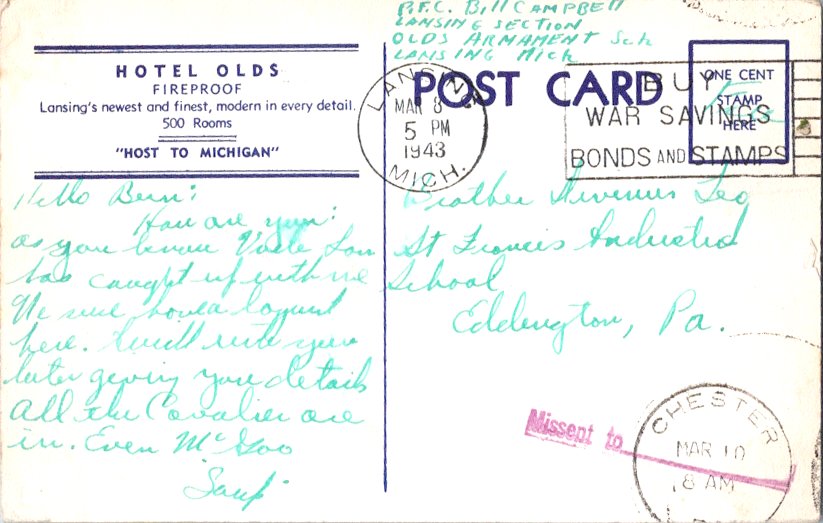 P.F.C. Bill CAMPBELL
LANSING SECTION
OLDS ARMAMENT Sch
LANSING Mich
HOTEL OLDS
FIREPROOF
Lansing's newest and finest, modern in every detail.
500 Rooms
"HOST TO MICHIGAN"
POST CARD
ONE CENT
STAMP
HERE
Free
LANSING
MAR 8
5 PM
1943
MICH.
BUY
WAR SAVINGS
BONDS AND STAMPS
Hello Bern:
How are you:
as you know Uncle Sam
has caught up with me
We sure have a
here. Will write you
later giving you details
All the Cavalier are
in. Even McGoo
Brother Leo
St Francis Industrial
School
Eddington, Pa.
Missent to
CHESTER
MAR 10
8 AM